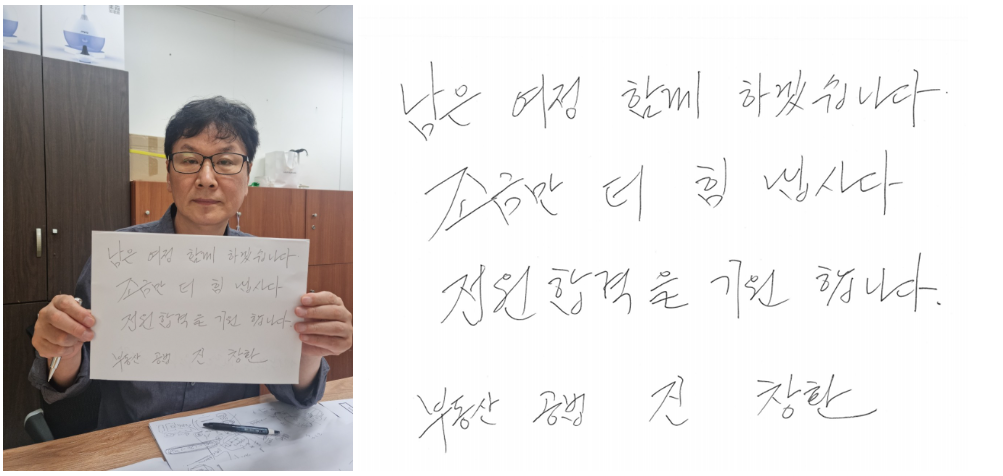 남은 여정 함께 하겠습니다
조금만 더 힘 냅시다
전원합격을 기원 합니다
부동산 공법 진 창한
남은 여정 함께 하겠습니다.
조금만 더 힘 냅시다
전원합격을 기원 합니다.
부동산 공법 진 창한